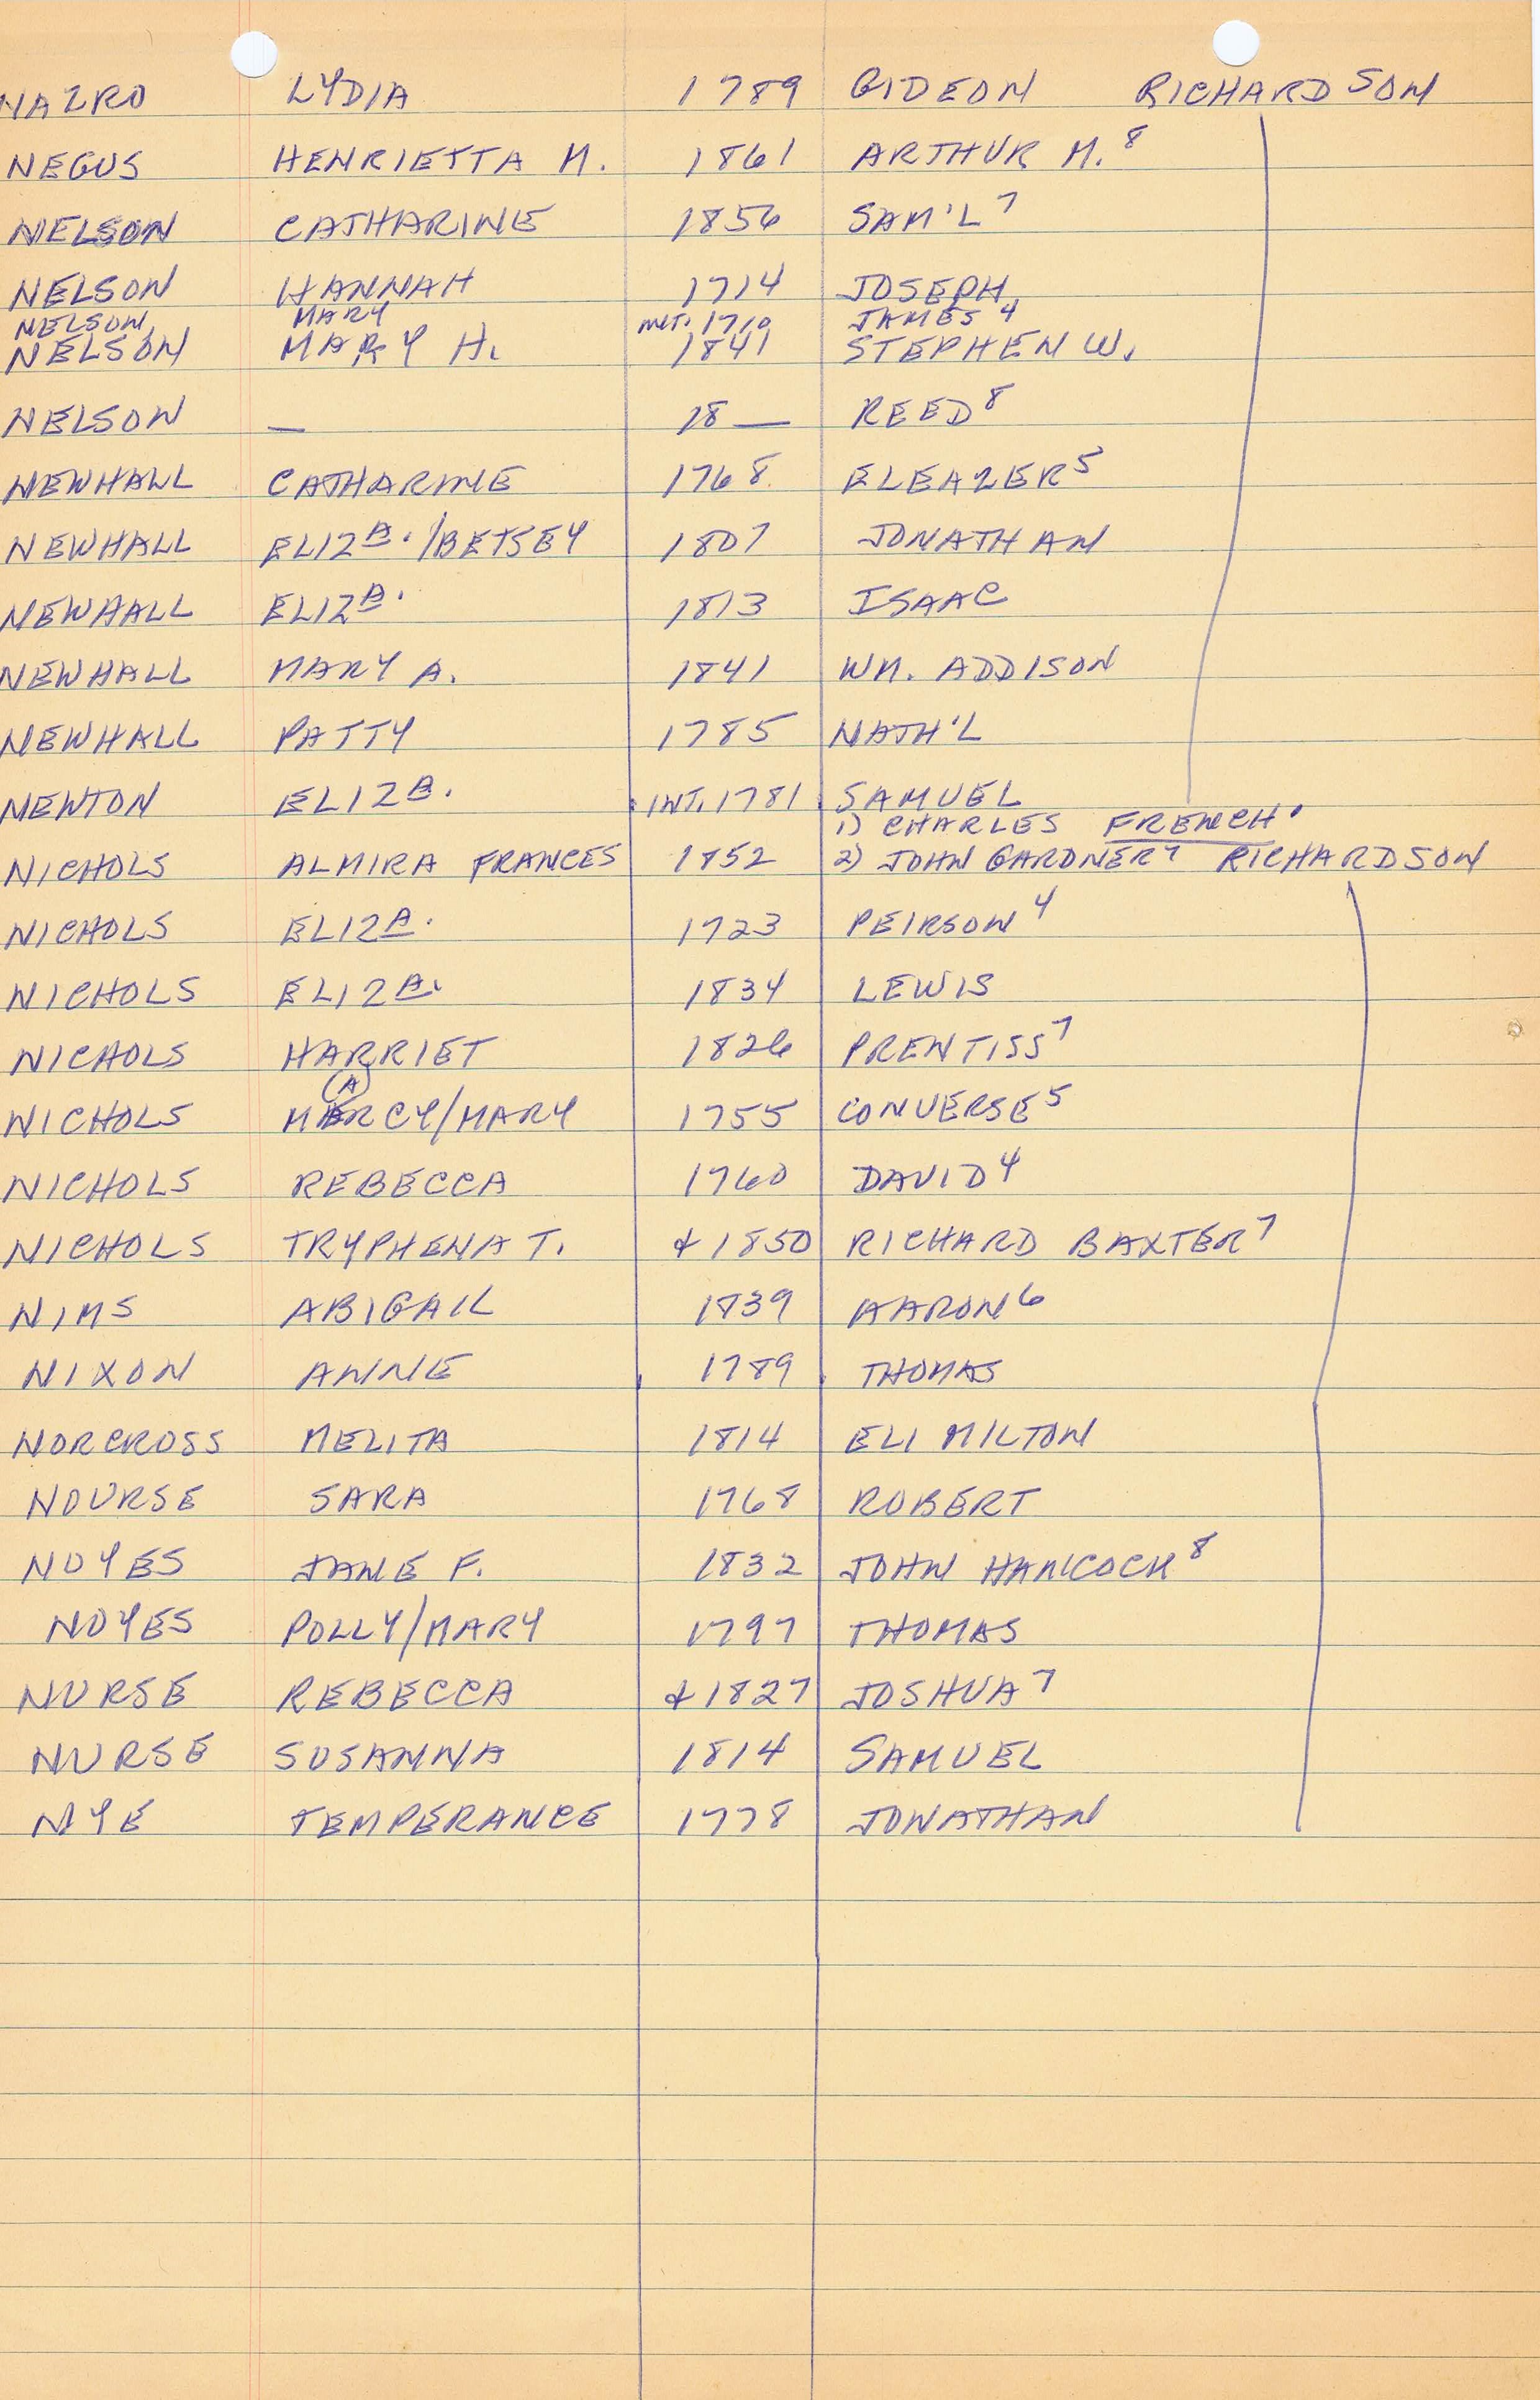 NAZRO LYDIA 1789 GIDEON RICHARDSON
NEGUS HENRIETTA M. 1861 ARTHUR M.⁸
NELSON CATHARINE 1856 SAM'L⁷
NELSON HANNAH 1714 JOSEPH
NELSON MARY INT. 1710 JAMES⁴
NELSON MARY H. 1841 STEPHEN W.
NELSON — 18— REED⁸
NEWHALL CATHARINE 1768 ELEAZER⁵
NEWHALL ELIZA./BETSEY 1807 JONATHAN
NEWHALL ELIZA. 1813 ISAAC
NEWHALL MARY A. 1841 WM. ADDISON
NEWHALL PATTY 1785 NATH'L
NEWTON ELIZA. INT. 1781 SAMUEL
1) CHARLES FRENCH
NICHOLS ALMIRA FRANCES 1852 2) JOHN GARDNER⁷ RICHARDSON
NICHOLS ELIZA. 1723 PEIRSON⁴
NICHOLS ELIZA. 1834 LEWIS
NICHOLS HARRIET 1826 PRENTISS⁷
(A)
NICHOLS MERCY/MARY 1755 CONVERSE⁵
NICHOLS REBECCA 1760 DAVID⁴
NICHOLS TRYPHENA T. 1850 RICHARD BAXTER⁷
NIMS ABIGAIL 1839 AARON⁶
NIXON ANNE 1789 THOMAS
NORCROSS MELITA 1814 ELI MILTON
NOURSE SARA 1768 ROBERT
NOYES JANE F. 1832 JOHN HANCOCK⁸
NOYES POLLY/MARY 1797 THOMAS
NURSE REBECCA 1827 JOSHUA⁷
NURSE SUSANNA 1814 SAMUEL
NYE TEMPERANCE 1778 JONATHAN